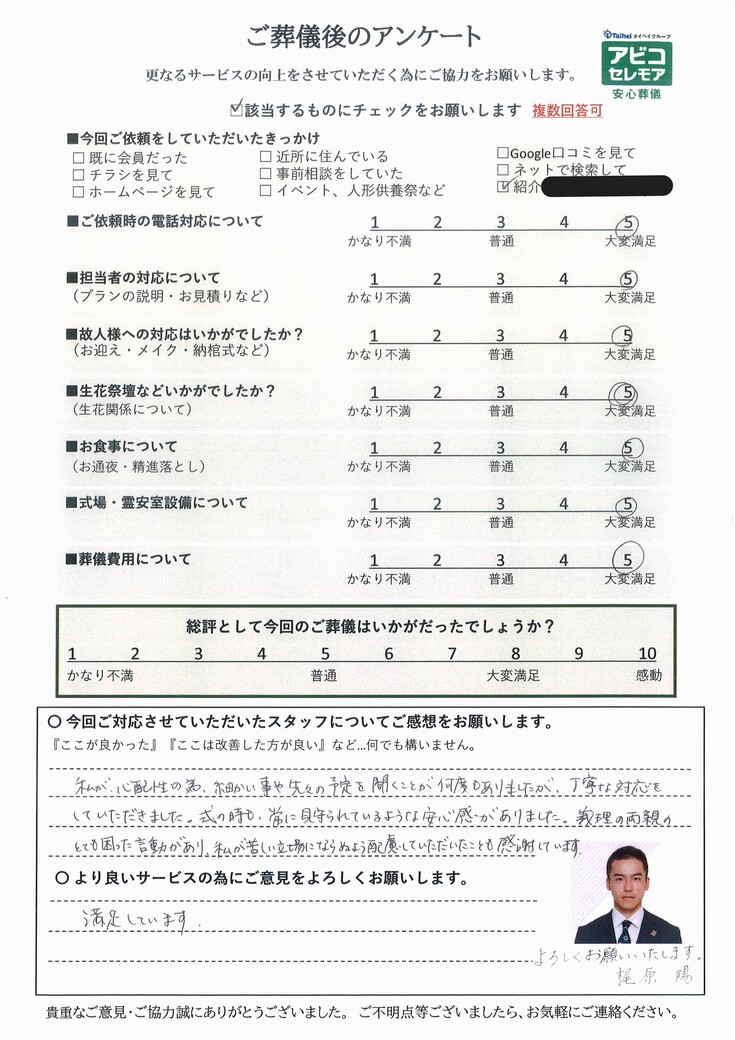 ご葬儀後のアンケート
Taihei タイヘイグループ
アビコ
セレモア
安心葬儀
更なるサービスの向上をさせていただく為にご協力をお願いします。
☑該当するものにチェックをお願いします 複数回答可
■今回ご依頼をしていただいたきっかけ
□ 既に会員だった □ 近所に住んでいる □Google口コミを見て
□ チラシを見て □ 事前相談をしていた □ ネットで検索して
□ ホームページを見て □ イベント、人形供養祭など ☑ 紹介
■ご依頼時の電話対応について 1 2 3 4 5
かなり不満 普通 大変満足
■担当者の対応について 1 2 3 4 5
（プランの説明・お見積りなど） かなり不満 普通 大変満足
■故人様への対応はいかがでしたか？ 1 2 3 4 5
（お迎え・メイク・納棺式など） かなり不満 普通 大変満足
■生花祭壇などいかがでしたか？ 1 2 3 4 5
（生花関係について） かなり不満 普通 大変満足
■お食事について 1 2 3 4 5
（お通夜・精進落とし） かなり不満 普通 大変満足
■式場・霊安室設備について 1 2 3 4 5
かなり不満 普通 大変満足
■葬儀費用について 1 2 3 4 5
かなり不満 普通 大変満足
総評として今回のご葬儀はいかがだったでしょうか？
1 2 3 4 5 6 7 8 9 10
かなり不満 普通 大変満足 感動
〇 今回ご対応させていただいたスタッフについてご感想をお願いします。
『ここが良かった』『ここは改善した方が良い』など…何でも構いません。
私が、心配性の為、細かい事や先々の予定を聞くことが何度もありましたが、丁寧な対応を
していただきました。式の時も、常に見守られているような安心感がありました。義理の両親の
とても困った言動があり、私が苦しい立場にならぬよう配慮していただいたことも感謝しています。
〇 より良いサービスの為にご意見をよろしくお願いします。
満足しています．
よろしくお願いいたします。
梶原 陽
貴重なご意見・ご協力誠にありがとうございました。 ご不明点等ございましたら、お気軽にご連絡ください。